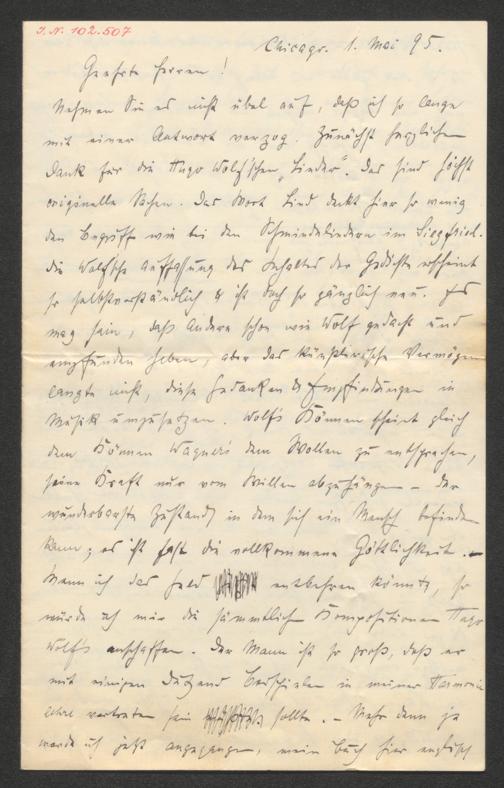 I. N. 102.507
Chicago. 1. Mai 95.
Geehrte Herren!
Nehmen Sie es nicht übel auf, daß ich so lange
mit einer Antwort verzog. Zunächst herzlichen
Dank für die Hugo Wolf'schen „Lieder“. Das sind höchst
originelle Sachen. Das Wort Lied deckt hier so wenig
den Begriff wie bei den Schmiedeliedern im Siegfried.
die Wolfsche Auffassung des Inhaltes der Gedichte erscheint
so selbstverständlich & ist doch so gänzlich neu. Es
mag sein, daß Andere schon wie Wolf gedacht und
empfunden haben, aber das künstlerische Vermögen
langte nicht, diese Gedanken & Empfindungen in
Musik umzusetzen. Wolfs Können scheint gleich
dem Können Wagners dem Wollen zu entsprechen,
seine Kraft nur vom Willen abzuhängen – der
wunderbarste Zustand, in dem sich ein Mensch befinden
kann; es ist fast die vollkommene Göttlichkeit. –
Wenn ich das Geld entbehren könnte, so
würde ich mir die sämmtlichen Kompositionen Hugo
Wolfs anschaffen. Der Mann ist so groß, daß er
mit einigen Dutzend Beispielen in meiner Harmonie
lehre vertreten sein sollte. – Mehr denn je
werde ich jetzt angegangen, mein Buch hier englisch